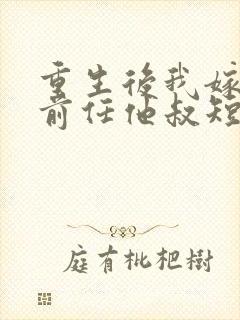 重生後我嫁
前任他叔短
庭有枇杷樹